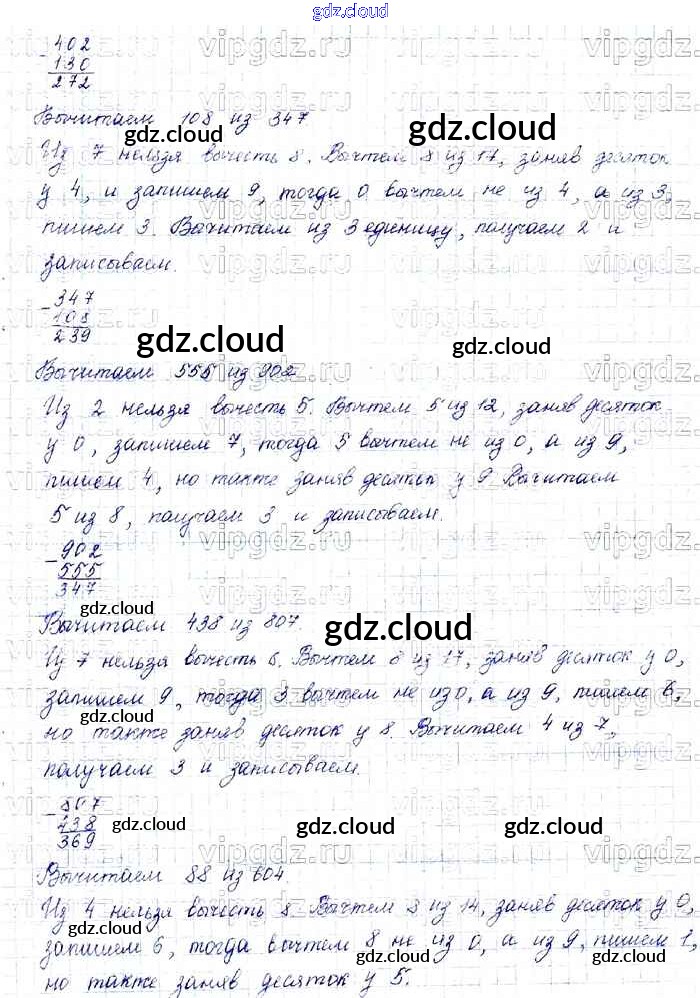 gdz.cloud
- 402
130
272
Вычитаем 108 из 347
Из 7 нельзя вычесть 8. Вычтем 8 из 17, заняв десяток
у 4, и запишем 9, тогда 0 вычтем не из 4, а из 3,
пишем 3. Вычитаем из 3 единицу, получаем 2 и
записываем.
- 347
108
239
Вычитаем 555 из 902
Из 2 нельзя вычесть 5. Вычтем 5 из 12, заняв десяток
у 0, запишем 7, тогда 5 вычтем не из 0, а из 9,
пишем 4, но также заняв десяток у 9 Вычитаем
5 из 8, получаем 3 и записываем.
- 902
555
347
Вычитаем 438 из 807.
Из 7 нельзя вычесть 8. Вычтем 8 из 17, заняв десяток у 0,
запишем 9, тогда 3 вычтем не из 0, а из 9, пишем 6,
но также заняв десяток у 8. Вычитаем 4 из 7,
получаем 3 и записываем.
- 807
438
369
Вычитаем 88 из 604
Из 4 нельзя вычесть 8. Вычтем 8 из 14, заняв десяток у 0,
запишем 6, тогда вычтем 8 не из 0, а из 9, пишем 1,
но также заняв десяток у 5.
gdz.cloud
vipgdz.ru